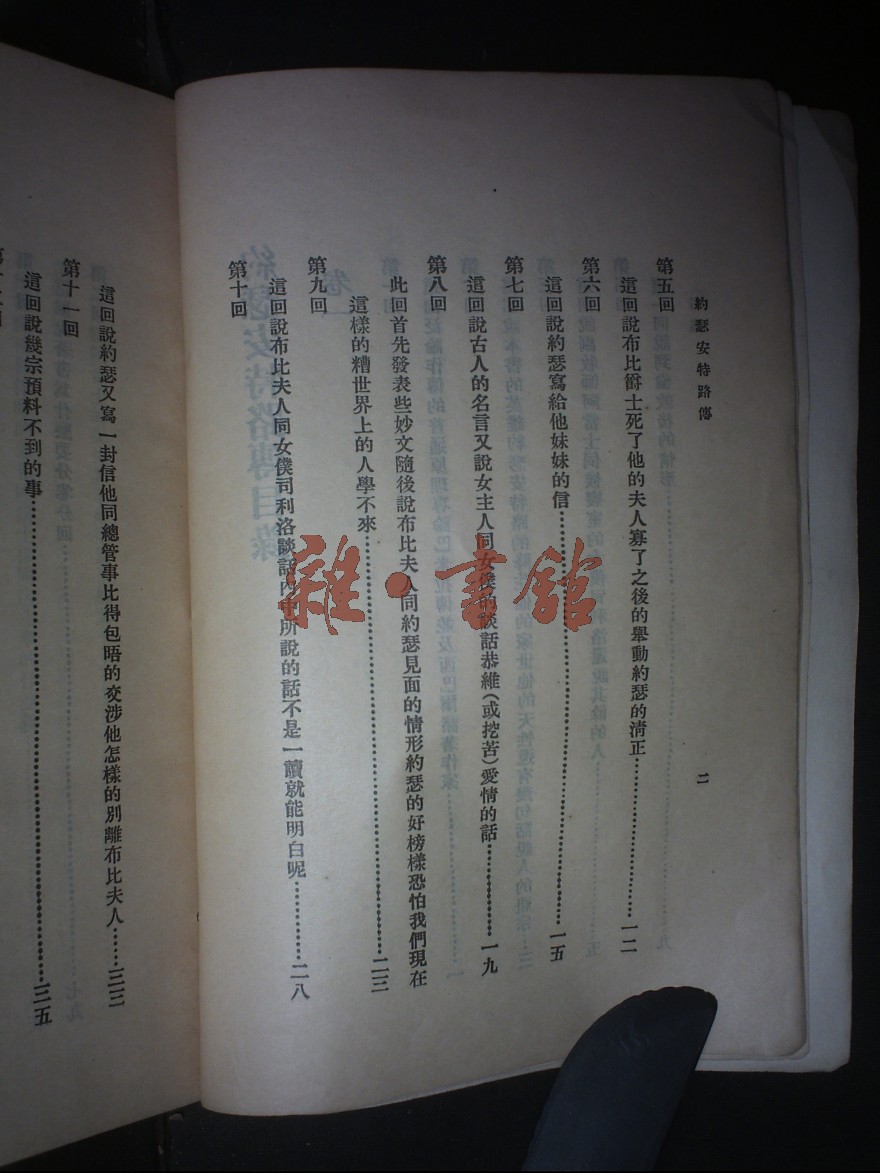 約瑟安特路傳
二
第五回
這回說布比爵士死了他的夫人寡了之後的舉動約瑟的清正……一二
第六回
這回說約瑟寫給他妹妹的信……一五
第七回
這回說古人的名言又說女主人同女僕的談話恭維(或挖苦)愛情的話……一九
第八回
此回首先發表些妙文隨後說布比夫人同約瑟見面的情形約瑟的好榜樣恐怕我們現在
這樣的糟世界上的人學不來……二三
第九回
這回說布比夫人同女僕司利洛談話內中所說的話不是一讀就能明白呢……二八
第十回
這回說約瑟又寫一封信他同總管事比得包唔的交涉他怎樣的別離布比夫人……三三
第十一回
這回說幾宗預料不到的事……三五
雜·書館